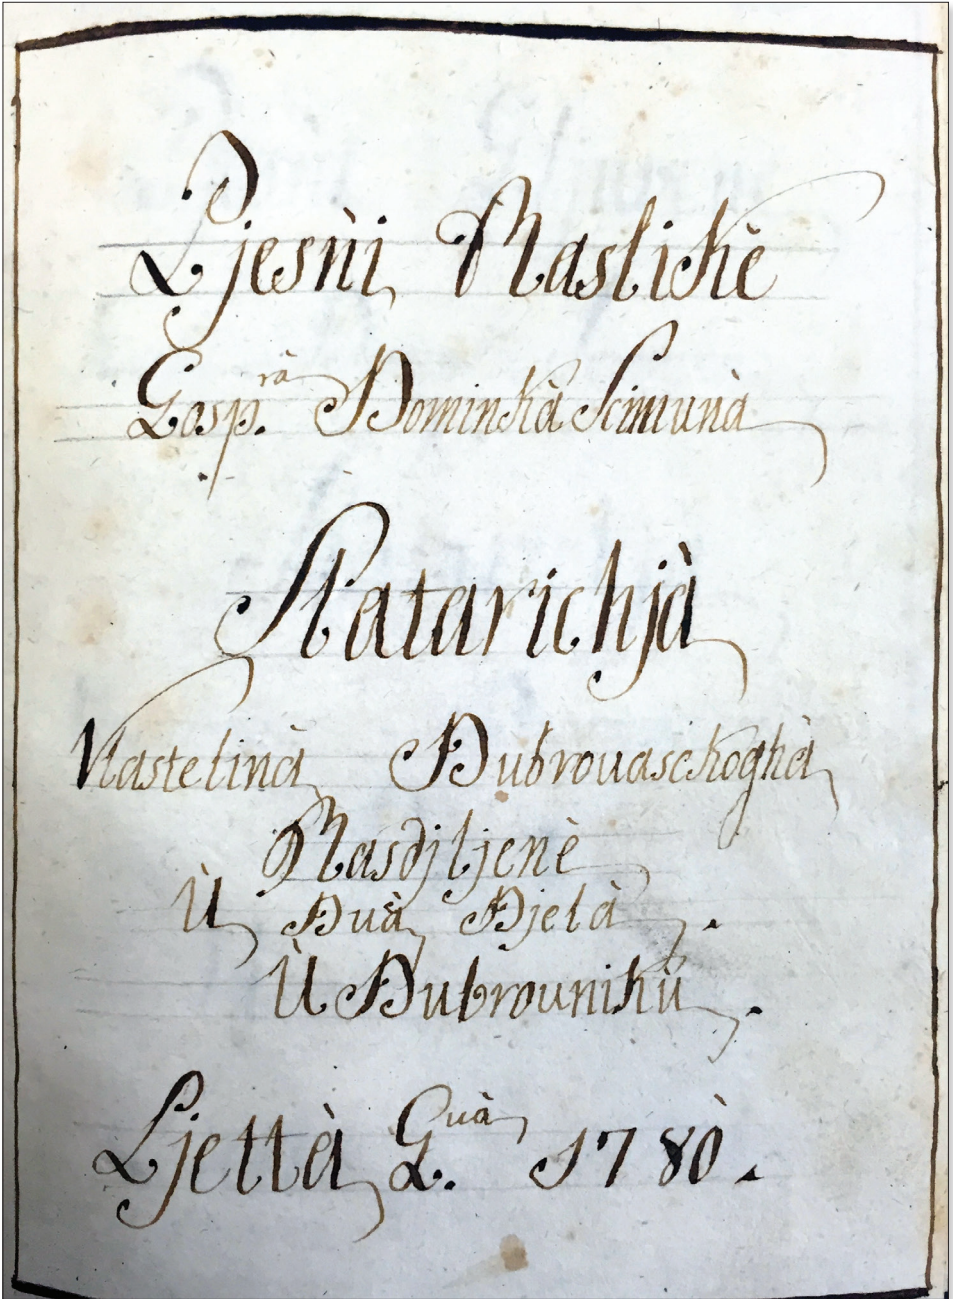 Pjesnì Raslickè
Gosp.rà Dominkà Scimunà
Slatarichjà
Vlastelinà Dubrouasckoghà
Rasdjljenè
Ù Duà Djelà.
Ù Dubrounikù.
Ljettà G.uà 1780.